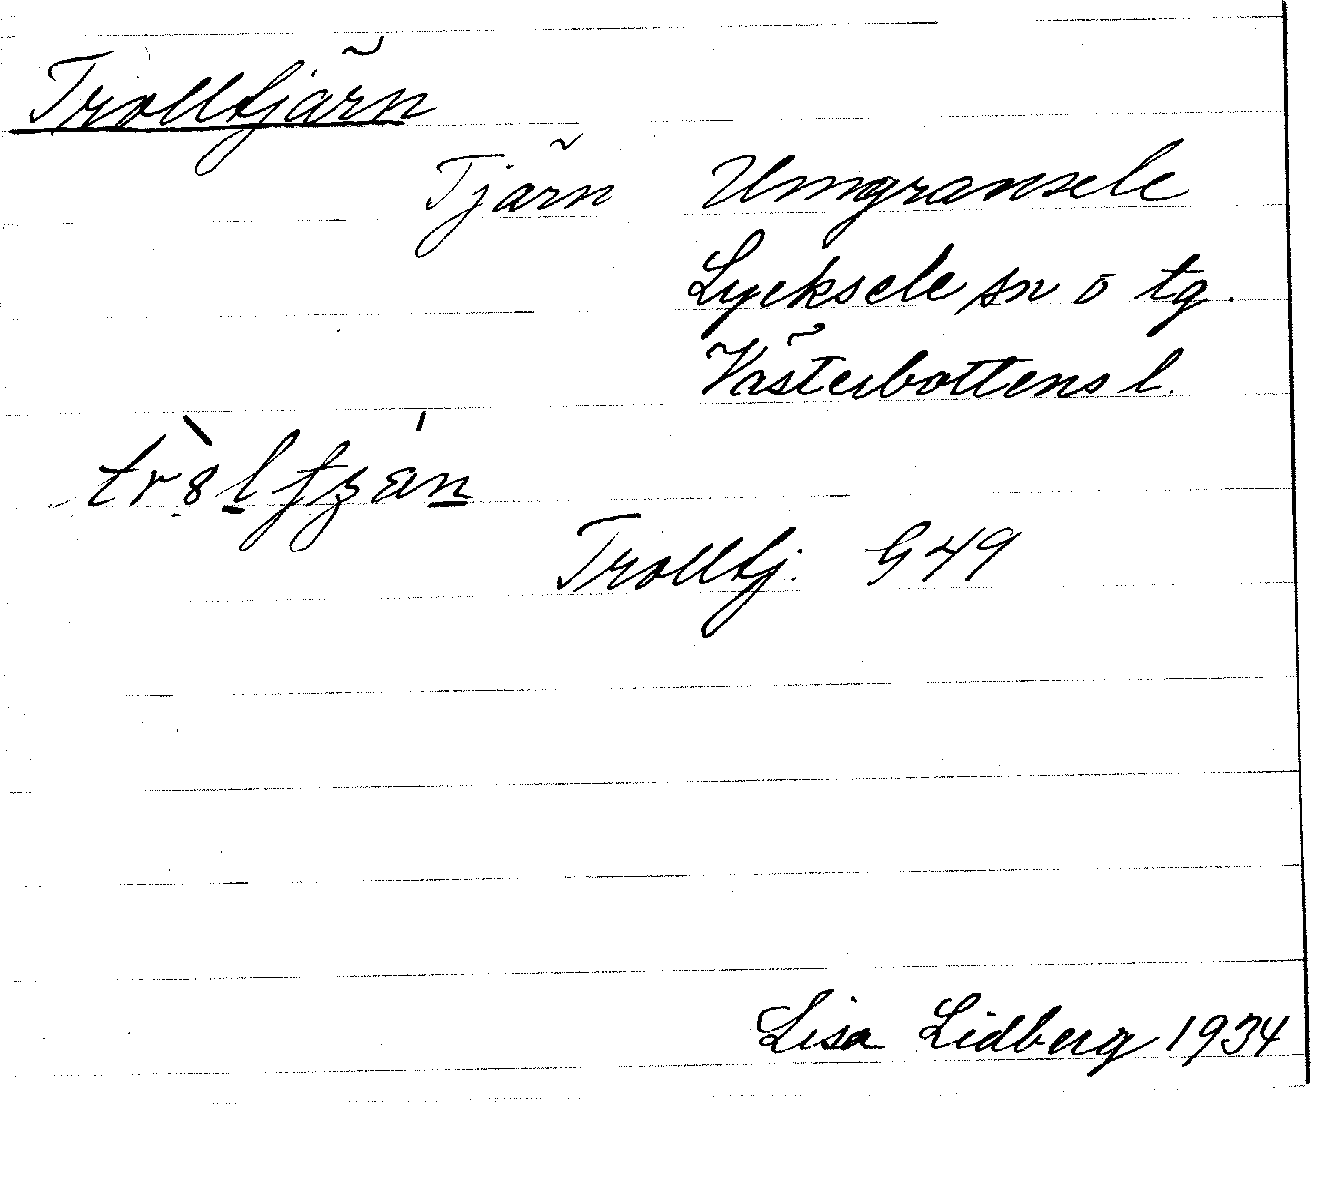 Trolltjärn
Tjärn Umgransele
Lycksele sn o tg.
Västerbottens l.
Trolltj. G 49
Lisa Lidberg 1934